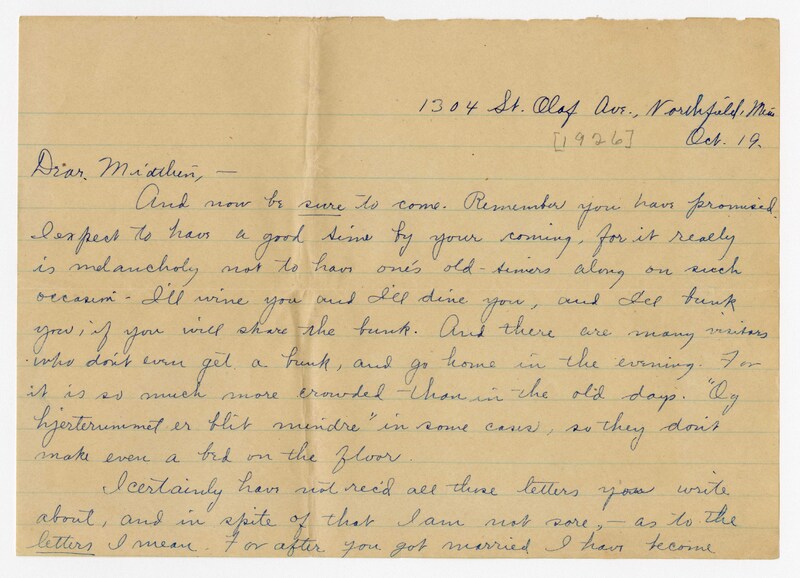 1304 St. Olaf Ave., Northfield, Minn
[1926] Oct. 19.
Dear Midthun, —
And now be sure to come. Remember you have promised.
I expect to have a good time by your coming, for it really
is melancholy not to have one's old-timers along on such
occasion - I'll wine you and I'll dine you, and I'll bunk
you; if you will share the bunk. And there are many visitors
who don't even get a bunk, and go home in the evening. For
it is so much more crowded than in the old days. "Og
hjerterummet er blit mindre" in some cases, so they don't
make even a bed on the floor.
I certainly have not rec'd all those letters you write
about, and in spite of that I am not sore, — as to the
letters I mean. For after you got married I have become